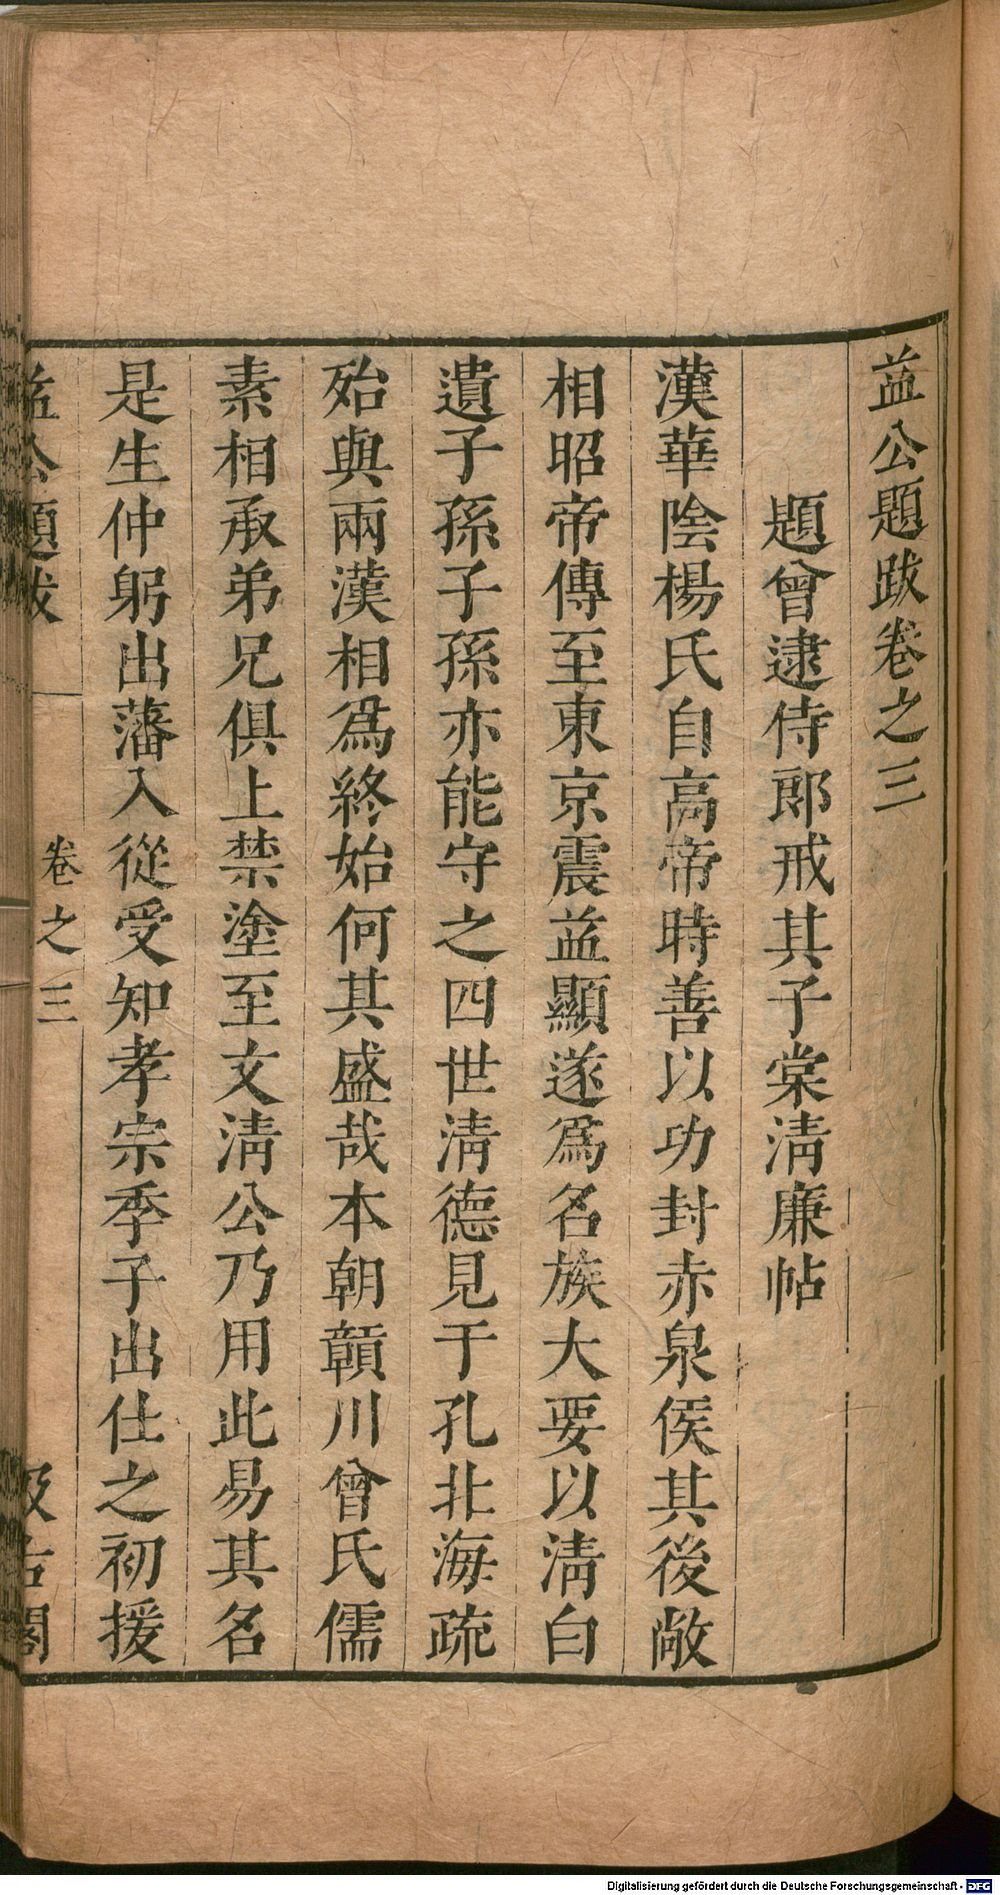 益公題跋卷之三
題曾逮侍郎戒其子棠淸廉帖
漢華陰楊氏自高帝時善以功封赤泉侯其後敞
相昭帝傳至東京震益顯遂爲名族大要以淸白
遺子孫子孫亦能守之四世淸德見于孔北海疏
殆與兩漢相爲終始何其盛哉本朝贛川曾氏儒
素相承弟兄俱上禁塗至文淸公乃用此易其名
是生仲躬出藩入從受知孝宗季子出仕之初援
益公題跋
卷之三
汲古閣
Digitalisierung gefördert durch die Deutsche Forschungsgemeinschaft - DFG